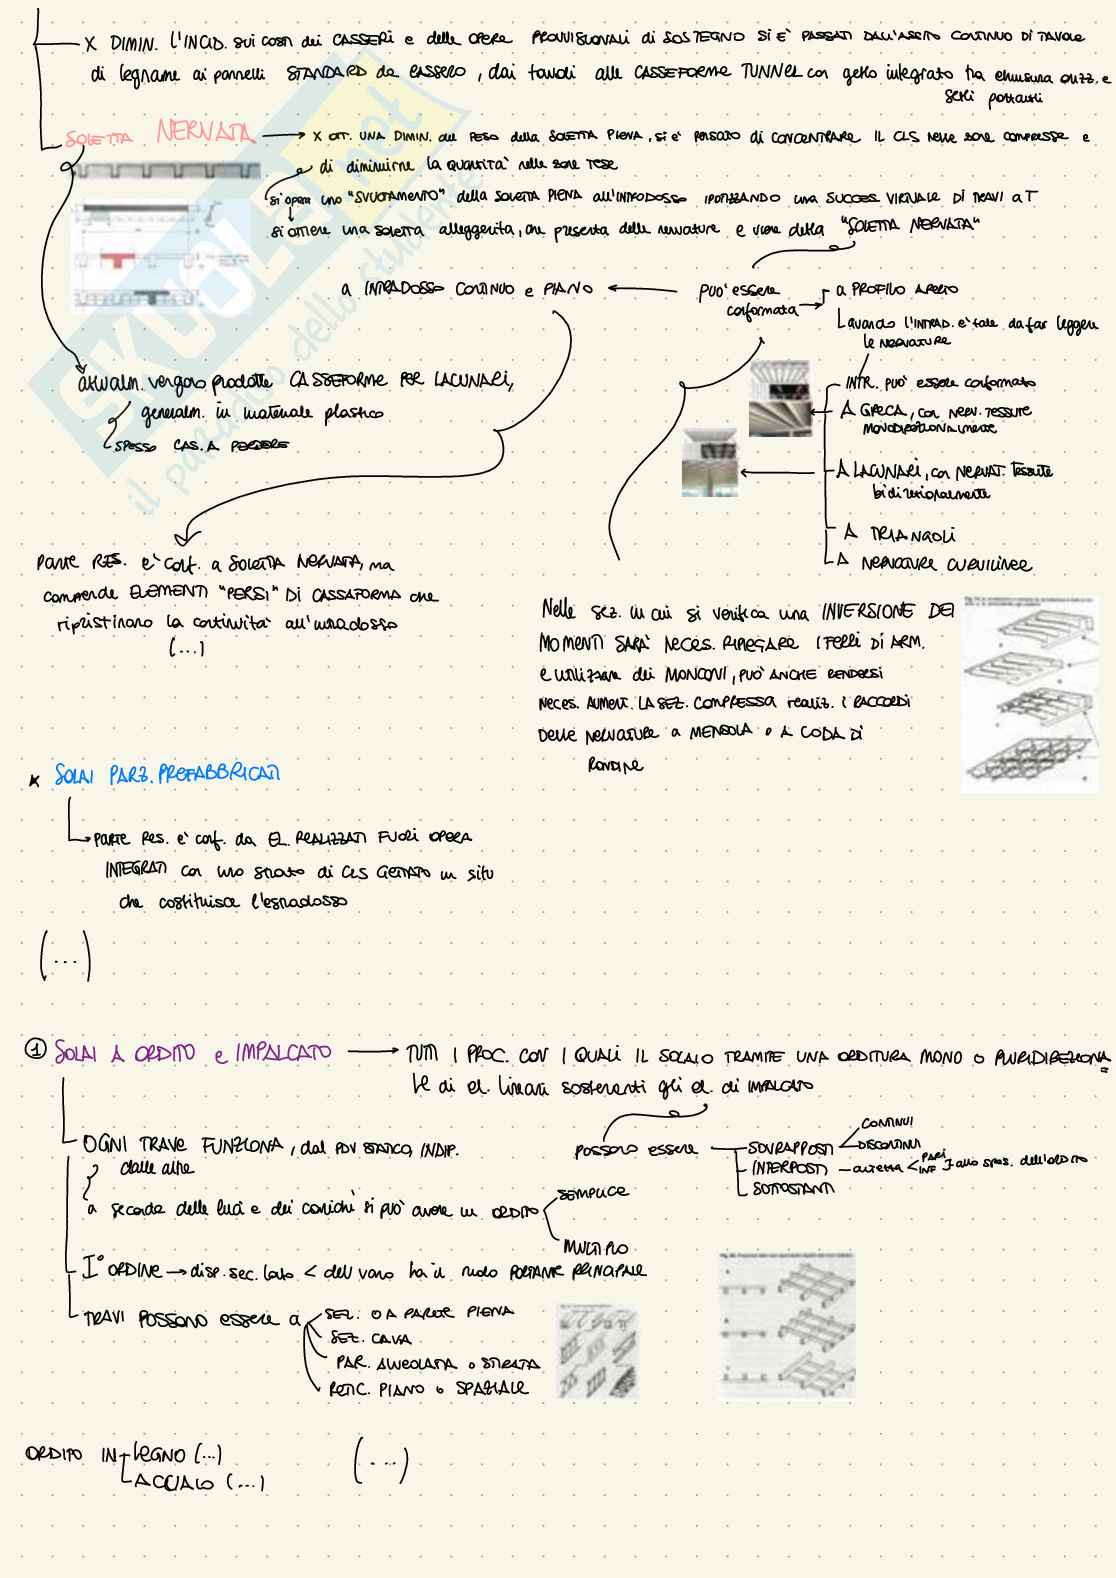 X DIMIN. L'INCID. sui costi dei CASSERI e delle OPERE PROVVISIONALI di SOSTEGNO SI È PASSATI DALL'ASSITO CONTINUO DI TAVOLE
di legname ai pannelli STANDARD da CASSERO, dai tavoli alle CASSEFORME TUNNEL con getto integrato tra chiusura orizz. e
setti portanti
SOLETTA NERVATA → X OTT. UNA DIMIN. del PESO della SOLETTA PIENA, si è pensato di CONCENTRARE IL CLS nelle zone compresse e
di diminuirne la quantità nelle zone TESE
si opera uno "SVUOTAMENTO" della SOLETTA PIENA all'INTRODOSSO IPOTIZZANDO una SUCCES. VIRTUALE DI TRAVI a T
si ottiene una soletta alleggerita, che presenta delle nervature e viene detta "SOLETTA NERVATA"
a INTRADOSSO CONTINUO e PIANO ← può essere conformata → a PROFILO APERTO
quando l'INTRAD. è tale da far leggere
le NERVATURE
attualm. vengono prodotte CASSEFORME PER LACUNARI,
generalm. in materiale plastico
SPESSO CAS. A PERDERE
INTR. PUÒ essere conformato
A GRECA, con NERV. TESSUTE
MONODIREZIONALMENTE
A LACUNARI, con NERVAT. TESSUTE
bidirezionalmente
A TRIANGOLI
A NERVATURE CURVILINEE
PARTE RES. è conf. a SOLETTA NERVATA, ma
comprende ELEMENTI "PERSI" DI CASSAFORMA che
ripristinano la continuità all'intradosso
(...)
Nelle sez. in cui si verifica una INVERSIONE DEI
MOMENTI SARÀ NECES. RIPIEGARE I FERRI DI ARM.
e utilizzare dei MONCONI, PUÒ ANCHE RENDERSI
NECES. AUMENT. LA SEZ. COMPRESSA realiz. I RACCORDI
DELLE NERVATURE a MENSOLA o A CODA DI
RONDINE
x SOLAI PARZ. PREFABBRICATI
PARTE RES. è conf. da EL. REALIZZATI FUORI OPERA
INTEGRATI con uno strato di CLS GETTATO in situ
che costituisce l'estradosso
(...)
① SOLAI A ORDITO e IMPALCATO → TUTTI I PROC. CON I QUALI IL SOLAIO TRAMITE UNA ORDITURA MONO O PLURIDIREZIONA=
LE di el. lineari sostenenti gli el. di IMPALCATO
OGNI TRAVE FUNZIONA, dal PDV STATICO, INDIP.
dalle altre
possono essere SOVRAPPOSTI CONTINUI
DISCONTINUI
INTERPOSTI - altezza < PARI INF ] allo spes. dell'ORDITO
SOTTOSTANTI
a seconda delle luci e dei carichi si può avere un ORDITO SEMPLICE
MULTIPLO
I° ORDINE → disp. sec. lato < del vano ha il ruolo PORTANTE PRINCIPALE
TRAVI POSSONO ESSERE a SEZ. O A PARETE PIENA
SEZ. CAVA
PAR. ALVEOLATA o STIRATA
RETIC. PIANO o SPAZIALE
ORDITO IN LEGNO (...) (...)
ACCIAIO (...)